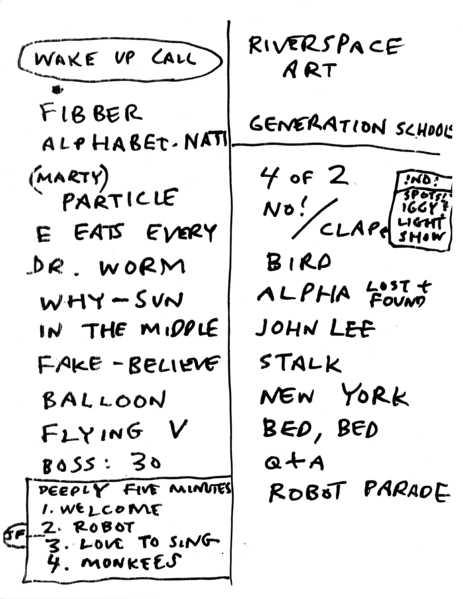 WAKE UP CALL
FIBBER
ALPHABET-NATI
(MARTY)
PARTICLE
E EATS EVERY
DR. WORM
WHY-SUN
IN THE MIDDLE
FAKE-BELIEVE
BALLOON
FLYING V
BOSS: 30
DEEPLY FIVE MINUTES
1. WELCOME
IF 2. ROBOT
3. LOVE TO SING
4. MONKEES
RIVERSPACE
ART
GENERATION SCHOOLS
4 OF 2
NO!/CLAP
IND:
SPOTS:
IGGY?
LIGHT
SHOW
BIRD
ALPHA LOST +
FOUND
JOHN LEE
STALK
NEW YORK
BED, BED
Q+A
ROBOT PARADE